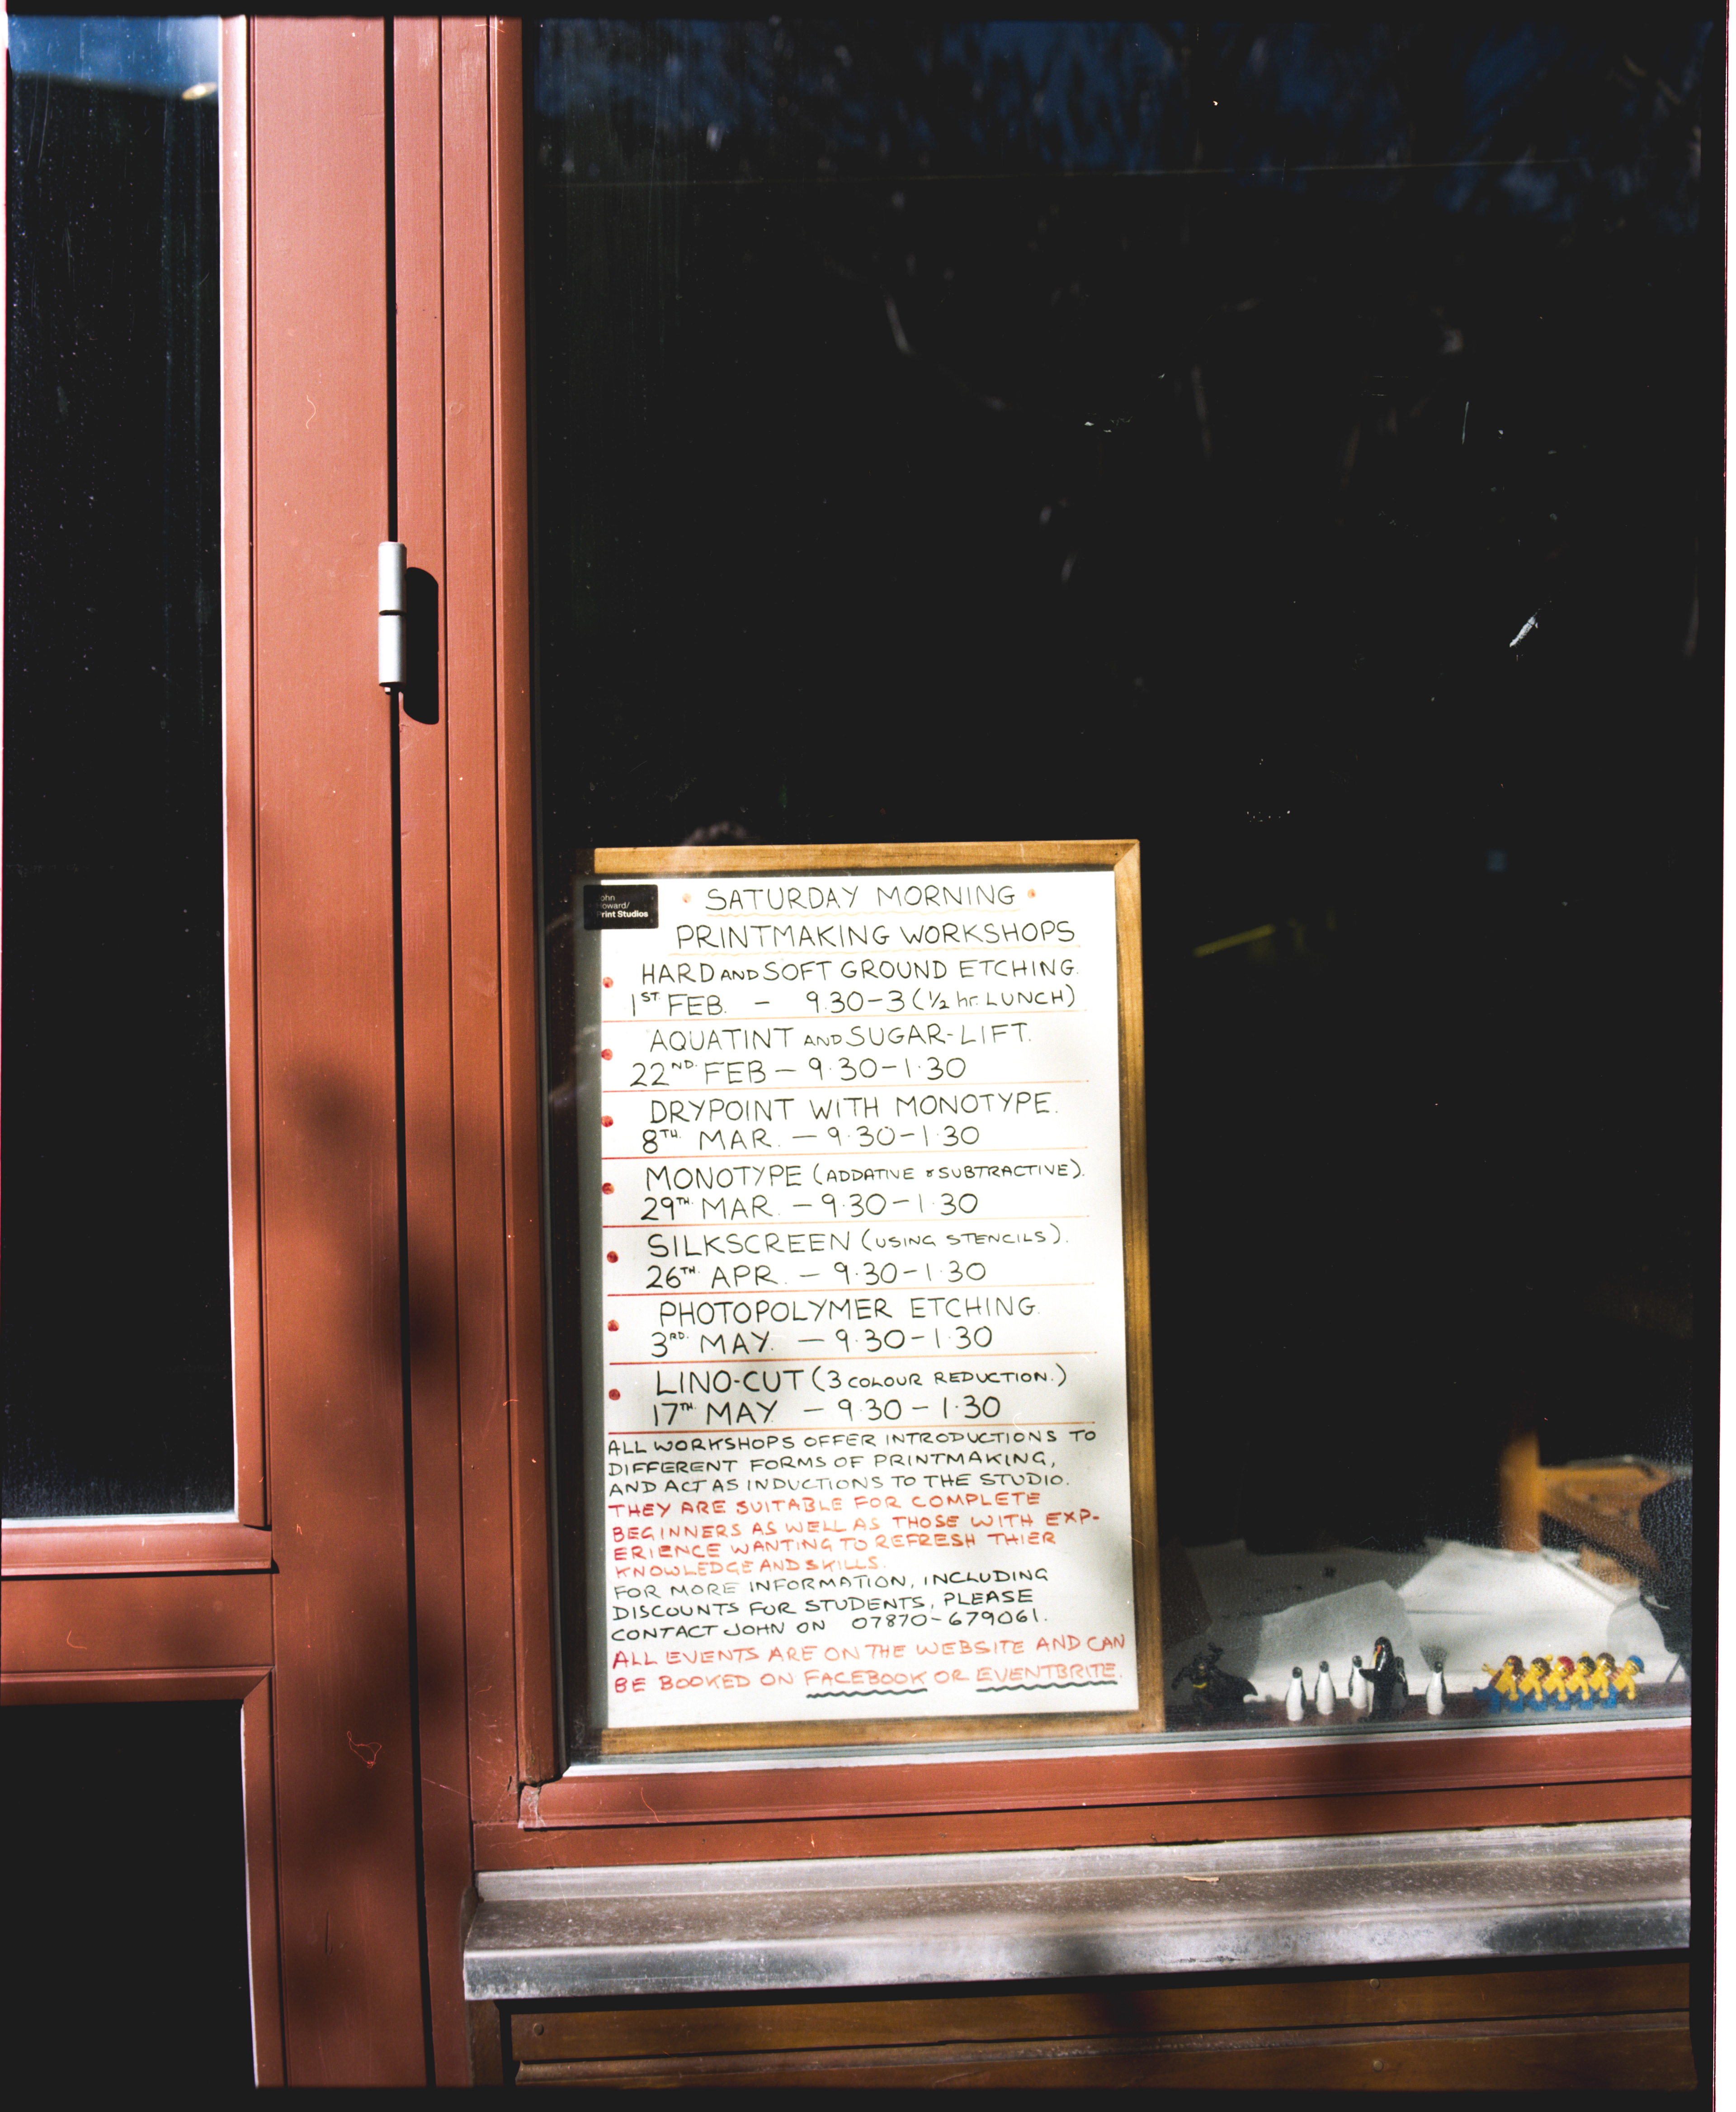 John
Howard/
Print Studios
SATURDAY MORNING
PRINTMAKING WORKSHOPS
HARD AND SOFT GROUND ETCHING.
1ST. FEB. - 9.30-3 (1/2 hr. LUNCH)
AQUATINT AND SUGAR-LIFT.
22ND. FEB - 9.30-1.30
DRYPOINT WITH MONOTYPE.
8TH. MAR. - 9.30-1.30
MONOTYPE (ADDATIVE & SUBTRACTIVE).
29TH. MAR. - 9.30-1.30
SILKSCREEN (USING STENCILS).
26TH. APR. - 9.30-1.30
PHOTOPOLYMER ETCHING.
3RD. MAY. - 9.30-1.30
LINO-CUT (3 COLOUR REDUCTION.)
17TH. MAY - 9.30-1.30
ALL WORKSHOPS OFFER INTRODUCTIONS TO
DIFFERENT FORMS OF PRINTMAKING,
AND ACT AS INDUCTIONS TO THE STUDIO.
THEY ARE SUITABLE FOR COMPLETE
BEGINNERS AS WELL AS THOSE WITH EXP-
ERIENCE WANTING TO REFRESH THIER
KNOWLEDGE AND SKILLS.
FOR MORE INFORMATION, INCLUDING
DISCOUNTS FOR STUDENTS, PLEASE
CONTACT JOHN ON 07870-679061.
ALL EVENTS ARE ON THE WEBSITE AND CAN
BE BOOKED ON FACEBOOK OR EVENTBRITE.